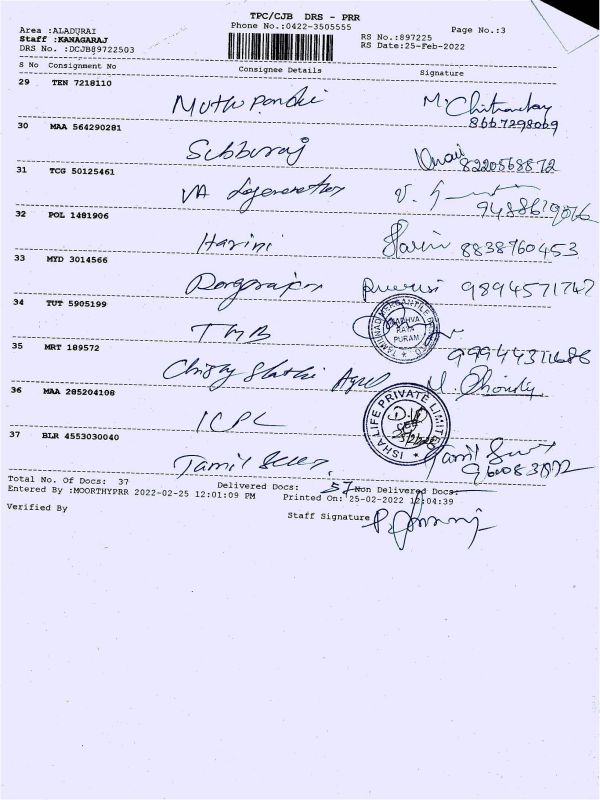 TPC/CJB DRS - PRR
Area :ALADURAI Phone No.:0422-3505555 Page No.:3
Staff :KANAGARAJ RS No.:897225
DRS No. :DCJB89722503 RS Date:25-Feb-2022
S No Consignment No Consignee Details Signature
29 TEN 7218110
Muthu Pandi M. 8667298069
30 MAA 564290281
Subburaj 8220568872
31 TCG 50125461
VA V.
32 POL 1481906
Harini Harini 8838760453
33 MYD 3014566
9894571747
34 TUT 5905199
TMB TAMILNAD MERCANTILE BANK LTD PURAM
35 MRT 189572
Christy
36 MAA 285204108
ICPL ISHA LIFE PRIVATE LIMITED
37 BLR 4553030040
Tamil Tamil
Total No. Of Docs: 37 Delivered Docs: 37 Non Delivered Docs:
Entered By :MOORTHYPRR 2022-02-25 12:01:09 PM Printed On: 25-02-2022 12:04:39
Verified By Staff Signature